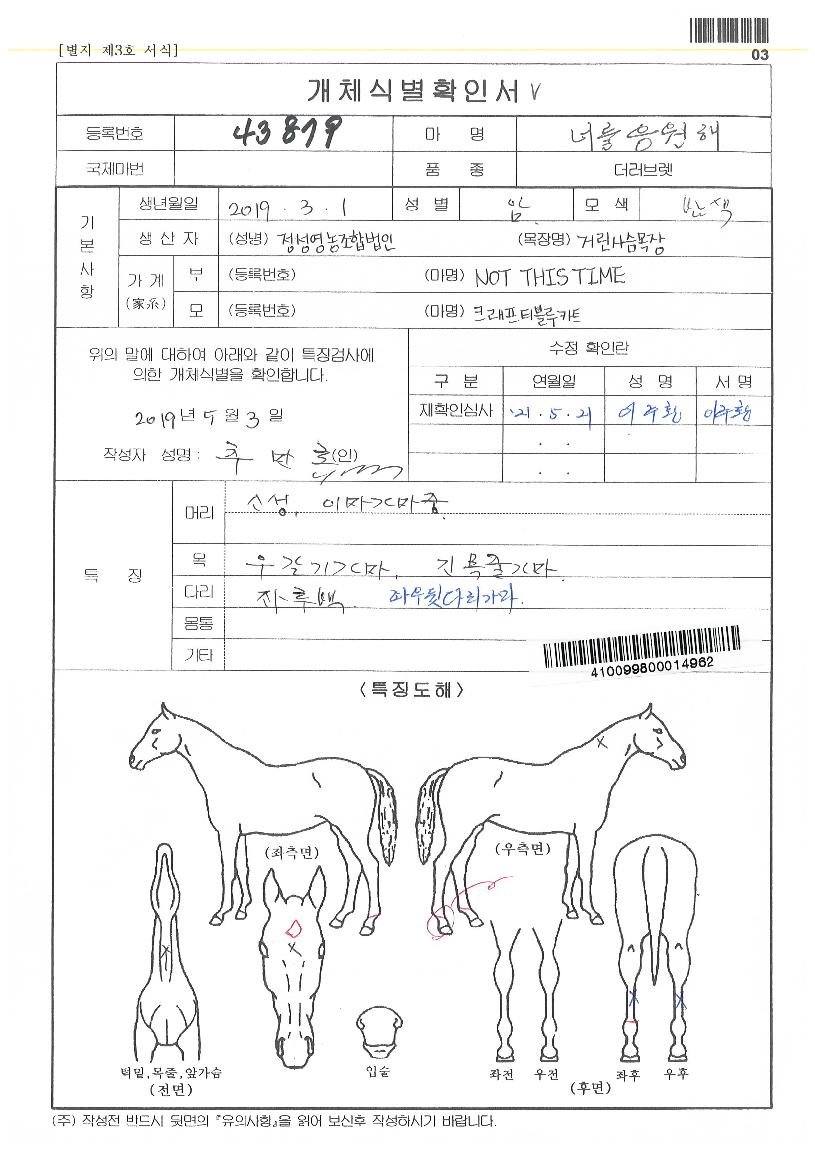 [별지 제3호 서식]
03
개체식별확인서 V
등록번호 43879 마 명 너를응원해
국제마번 품 종 더러브렛
기본사항
생년월일 2019 . 3 . 1 성 별 암 모 색 밤색
생 산 자 (성명) 정성영농조합법인 (목장명) 거린사슴목장
가 계 (家系)
부 (등록번호) (마명) NOT THIS TIME
모 (등록번호) (마명) 크래프티블루카트
위의 말에 대하여 아래와 같이 특징검사에
의한 개체식별을 확인합니다.
2019년 5 월 3 일
작성자 성명 : (인)
수정 확인란
구 분 연월일 성 명 서 명
재확인심사 '21 . 5 . 21 이주환 이주환
. .
. .
특 징
머리 소성, 이마가마중
목 우갈기가마, 긴목줄가마
다리 좌후백. 좌우뒷다리가마.
몸통
기타
410099800014962
<특징도해>
(좌측면) (우측면)
턱밑,목줄,앞가슴
(전면)
입술
좌전 우전 좌후 우후
(후면)
(주) 작성전 반드시 뒷면의 『유의사항』을 읽어 보신후 작성하시기 바랍니다.